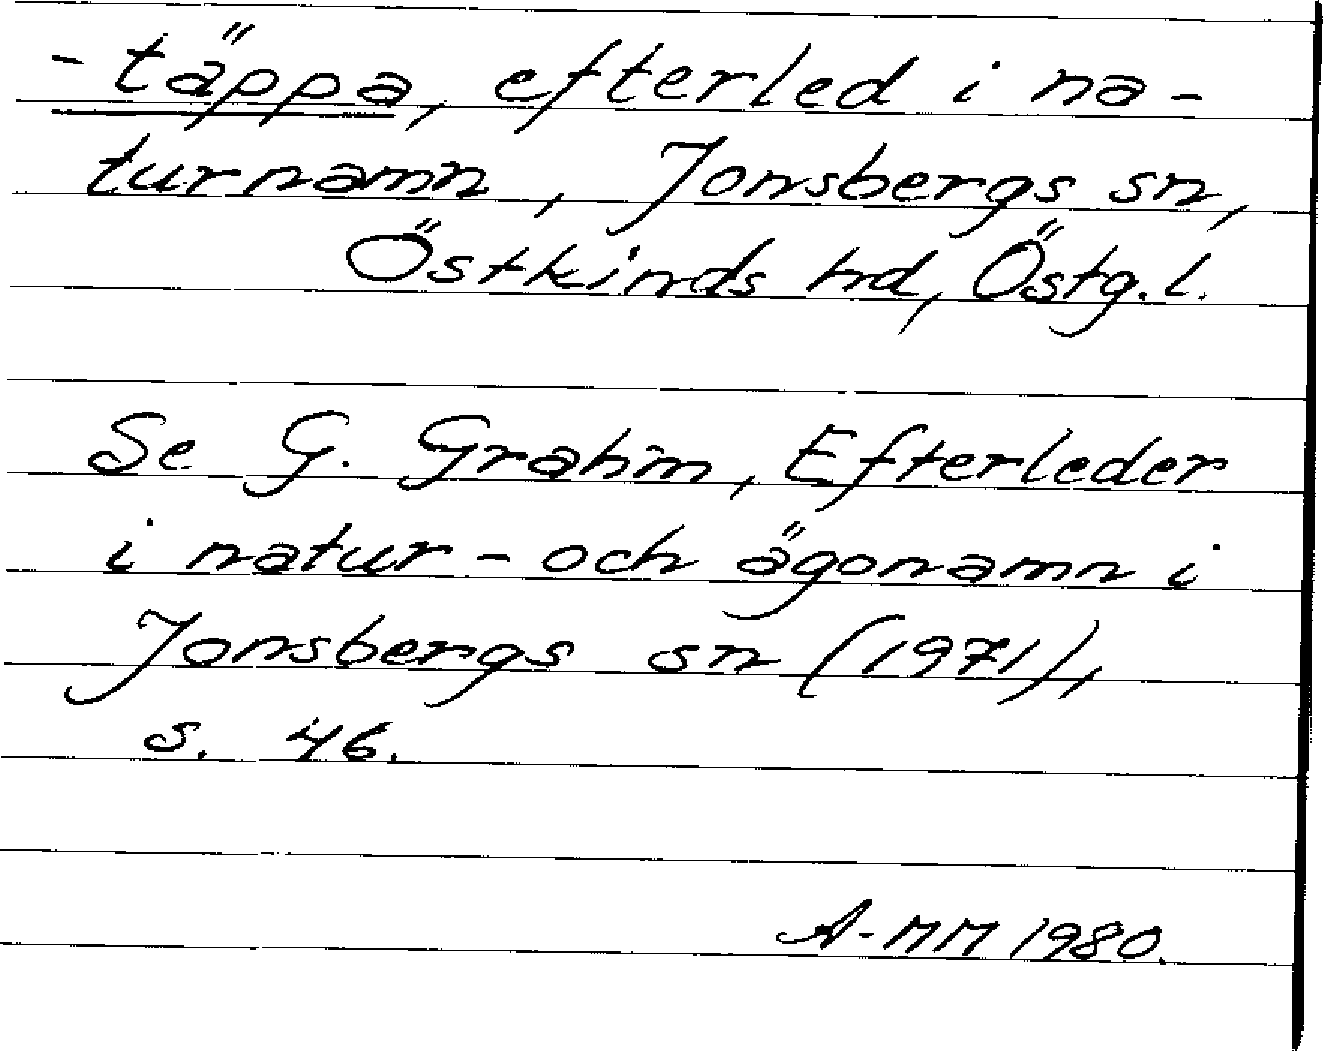 -täppa, efterled i na-
turnamn, Jonsbergs sn,
Östkinds hd, Östg.l.
Se G. Grahm, Efterleder
i natur- och ägonamn i
Jonsbergs sn (1971),
s. 46.
A-MM 1980.